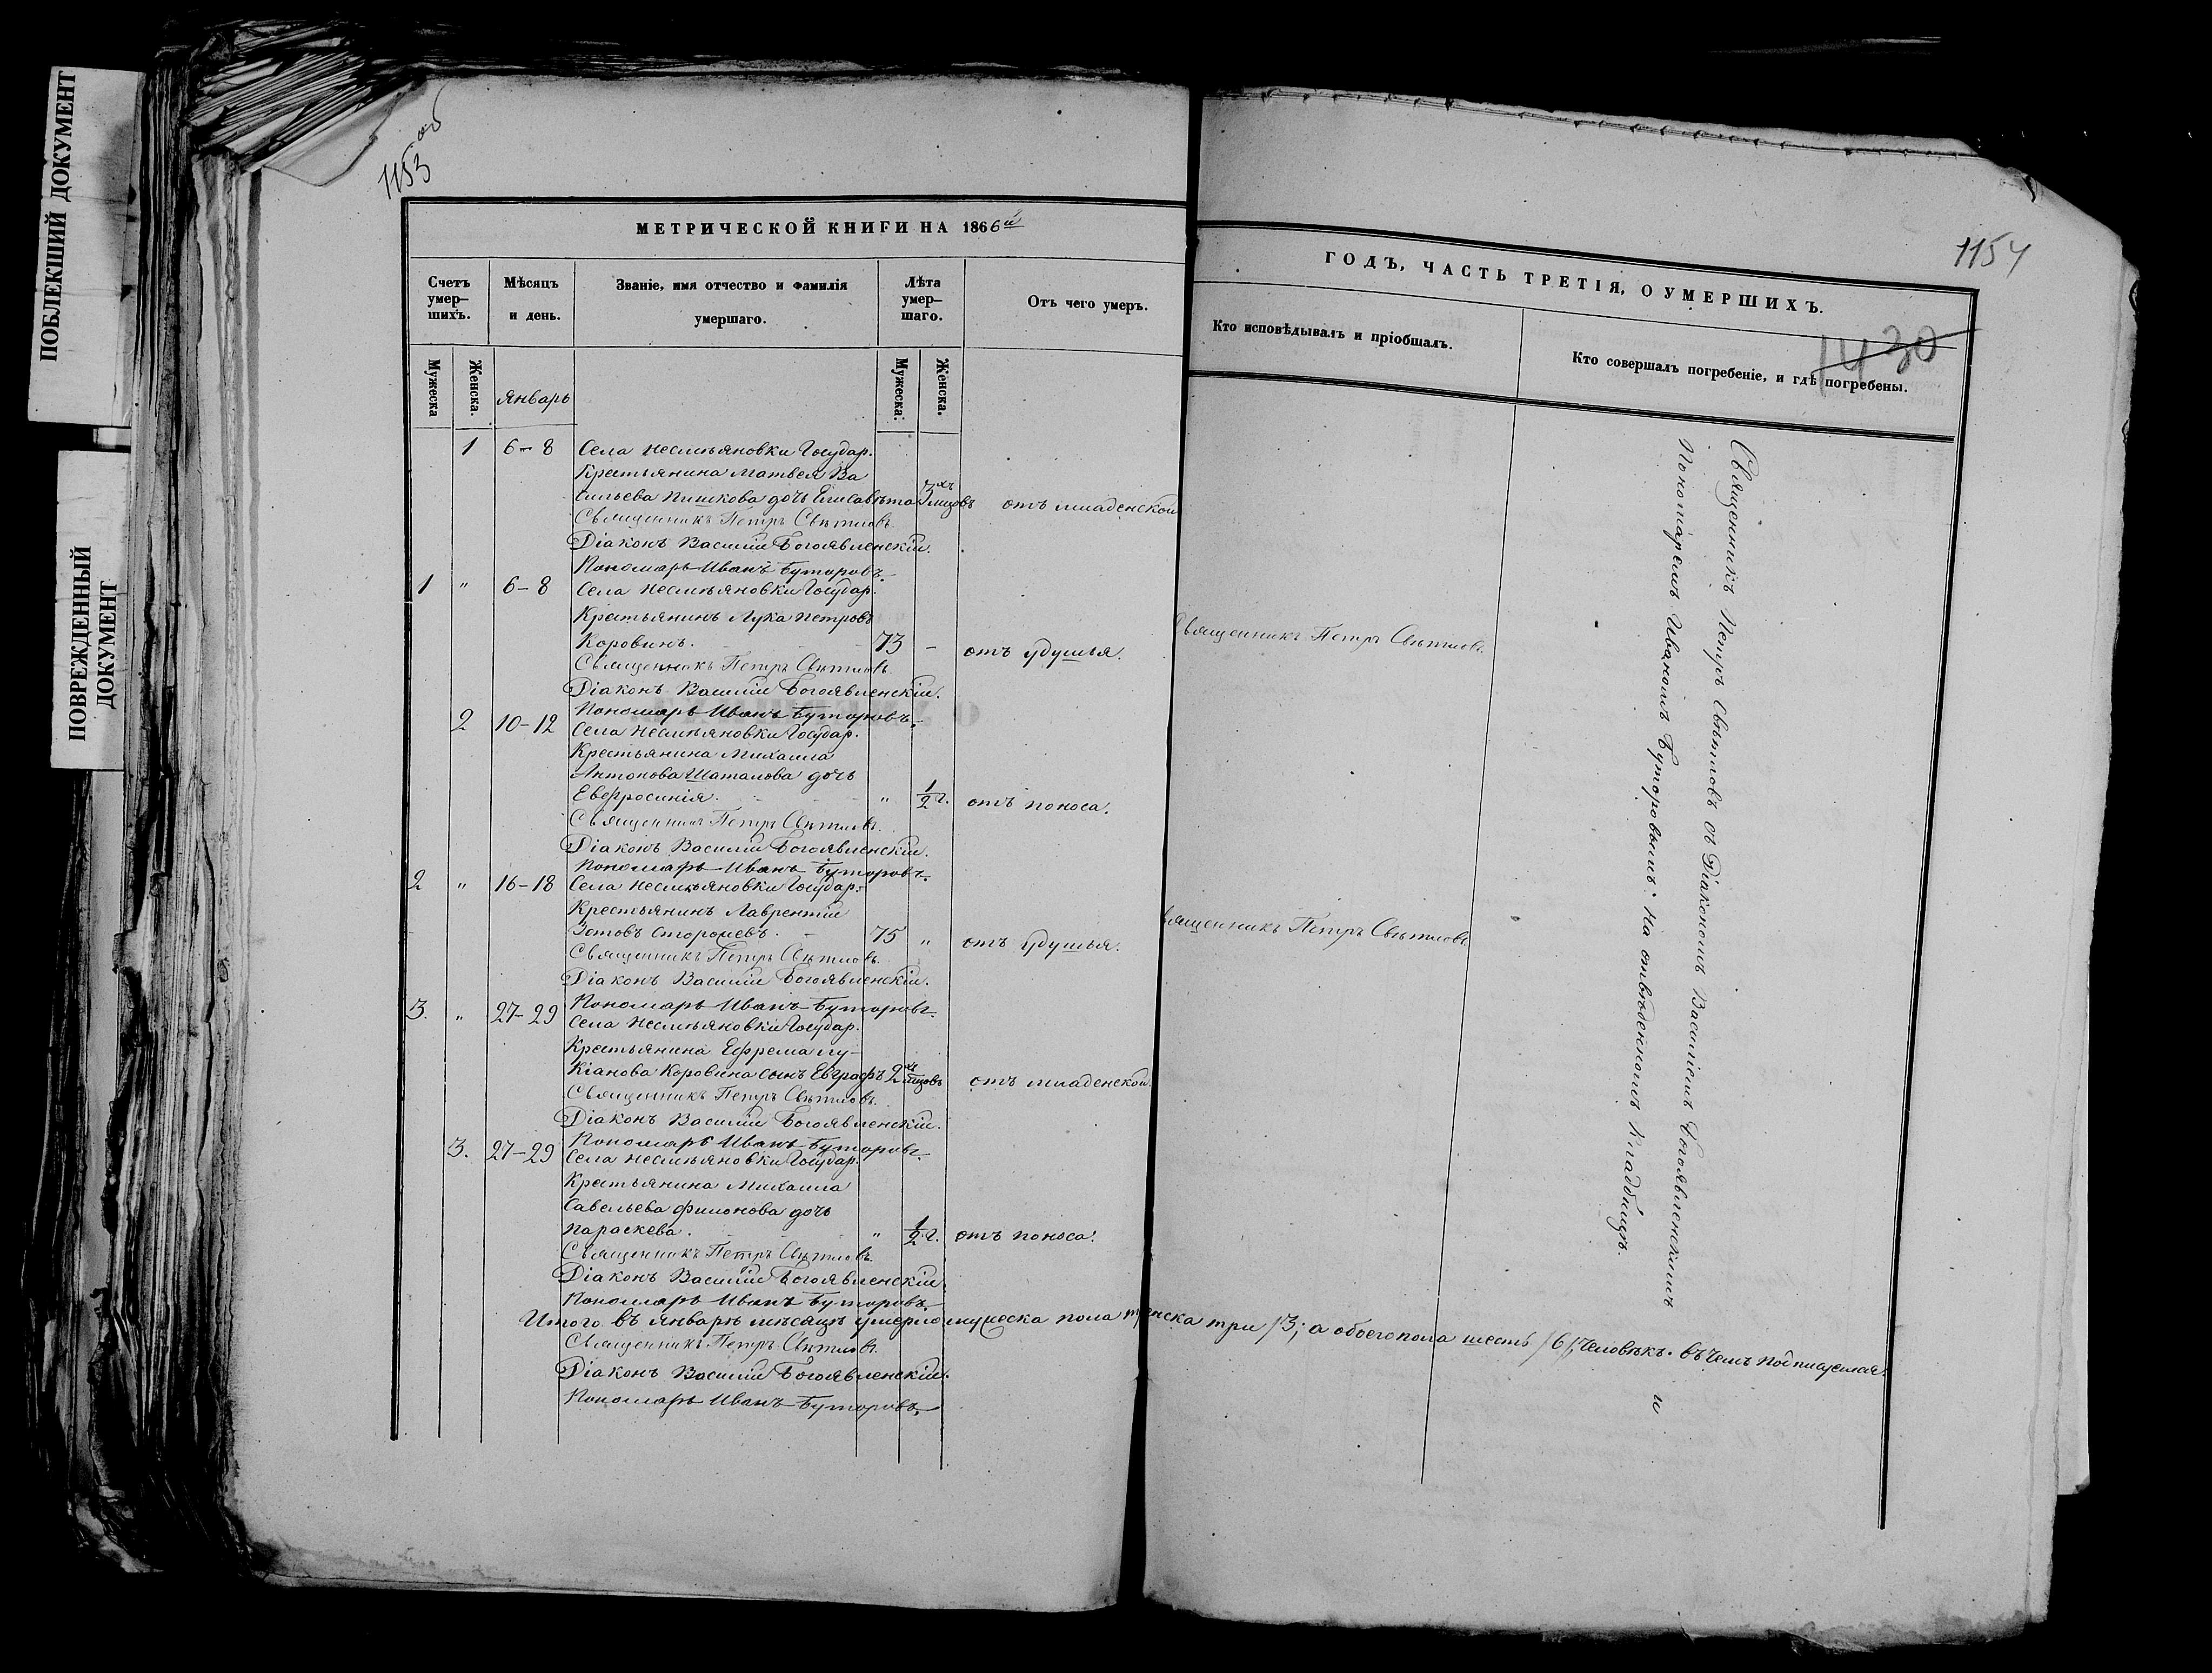 ПОБЛЕКШИЙ ДОКУМЕНТ
ПОВРЕЖДЕННЫЙ
ДОКУМЕНТ
1153 об
МЕТРИЧЕСКОЙ КНИГИ НА 1866й
Счетъ умер-шихъ.
Мѣсяцъ и день.
Званіе, имя отчество и фамилія умершаго.
Лѣта умер-шаго.
Отъ чего умеръ.
Мужеска
Женска.
Январь
Мужеска.
Женска.
1 6-8 Села Несмѣяновки Государ.
Крестьянина Матвея Ва
сильева Пишкова дочь Елисавѣта 3хъ мцовъ отъ младенской
Священникъ Петръ Свѣтловъ.
Діаконъ Василій Богоявленскій.
Пономарь Иванъ Буторовъ.
1 " 6-8 Села Несмѣяновки Государ.
Крестьянинъ Лука Петровъ
Коровинъ. 73 - отъ удушья.
Священникъ Петръ Свѣтловъ.
Діаконъ Василій Богоявленскій.
Пономарь Иванъ Буторовъ.
2 10-12 Села Несмѣяновки Государ.
Крестьянина Михаила
Антонова Шаталова дочь
Евфросинія. " 1/2 г. отъ поноса.
Священникъ Петръ Свѣтловъ.
Діаконъ Василій Богоявленскій.
Пономарь Иванъ Буторовъ.
2 " 16-18 Села Несмѣяновки Государ.
Крестьянинъ Лаврентій
Зотовъ 75 " отъ удушья.
Священникъ Петръ Свѣтловъ.
Діаконъ Василій Богоявленскій.
Пономарь Иванъ Буторовъ.
3. " 27-29 Села Несмѣяновки Государ.
Крестьянина Ефрема Лу-
кіанова Коровина сынъ Евграфъ 2хъ мцовъ отъ младенской.
Священникъ Петръ Свѣтловъ.
Діаконъ Василій Богоявленскій.
Пономарь Иванъ Буторовъ.
3. 27-29 Села Несмѣяновки Государ.
Крестьянина Михаила
Савельева Филонова дочь
Параскева. " 1/2 г. отъ поноса.
Священникъ Петръ Свѣтловъ.
Діаконъ Василій Богоявленскій.
Пономарь Иванъ Буторовъ.
Итого въ Январѣ мѣсяцѣ умерло мужеска пола женска три /3/; а обоего пола шесть /6/ человѣкъ. въ чемъ подписуемся:
Священникъ Петръ Свѣтловъ.
Діаконъ Василій Богоявленскій.
Пономарь Иванъ Буторовъ.
1154
ГОДЪ, ЧАСТЬ ТРЕТІЯ, О УМЕРШИХЪ.
1430
Кто исповѣдывалъ и пріобщалъ.
Кто совершалъ погребеніе, и гдѣ погребены.
Священникъ Петръ Свѣтловъ.
Священникъ Петръ Свѣтловъ
Священникъ Петръ Свѣтловъ съ Діакономъ Василіемъ Богоявленскимъ и
Пономаремъ Иваномъ Буторовымъ. на отвѣденномъ кладбищѣ.